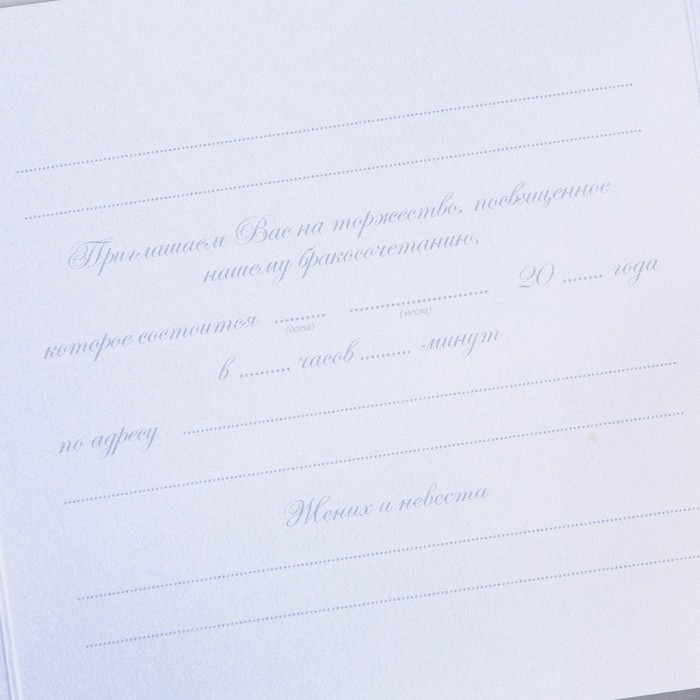 Приглашаем Вас на торжество, посвященное
нашему бракосочетанию,
которое состоится ........ ........................ 20 ....... года
(дата) (месяц)
в ......... часов ......... минут
по адресу
Жених и невеста